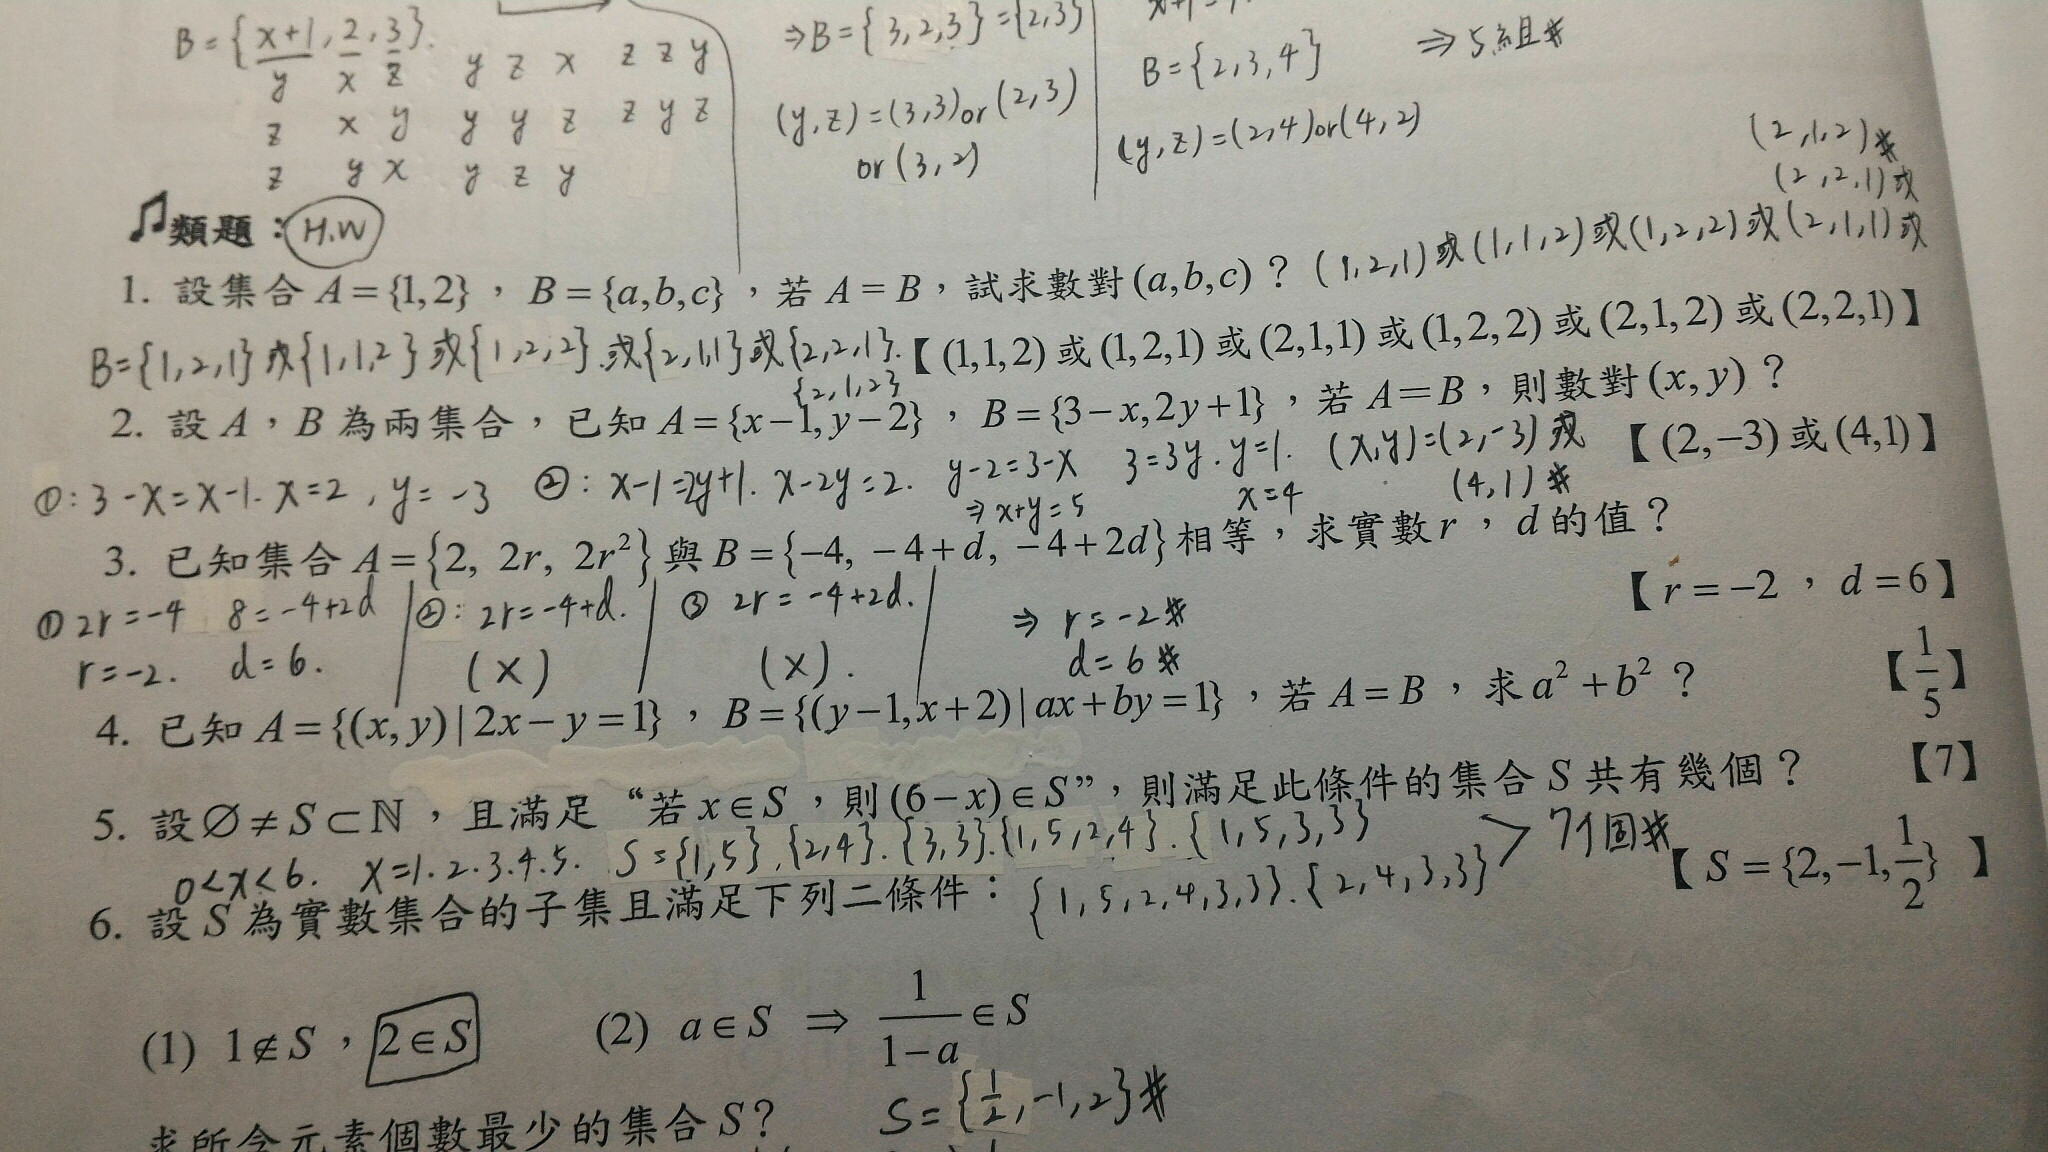 B={x+1,2,3}.
y x z y z x z z y
z x y y y z z y z
z y x y z y
⇒B={3,2,3}={2,3}
(y,z)=(3,3)or(2,3)
or(3,2)
B={2,3,4}
(y,z)=(2,4)or(4,2)
⇒5組#
(2,1,2)#
(2,2,1)或
♫類題：H.W
1. 設集合 A={1,2}，B={a,b,c}，若 A=B，試求數對(a,b,c)？(1,2,1)或(1,1,2)或(1,2,2)或(2,1,1)或
B={1,2,1}或{1,1,2}或{1,2,2}.或{2,1,1}或{2,2,1}.【(1,1,2)或(1,2,1)或(2,1,1)或(1,2,2)或(2,1,2)或(2,2,1)】
{2,1,2}
2. 設A，B為兩集合，已知A={x-1,y-2}，B={3-x,2y+1}，若A=B，則數對(x,y)？
【(2,-3)或(4,1)】
①:3-x=x-1. x=2,y=-3 ②:x-1=2y+1. x-2y=2. y-2=3-x 3=3y.y=1. (x,y)=(2,-3)或
⇒x+y=5 x=4 (4,1)#
3. 已知集合A={2, 2r, 2r²}與B={-4, -4+d, -4+2d}相等，求實數r，d的值？
【r=-2，d=6】
① 2r=-4 8=-4+2d ②:2r=-4+d. ③ 2r=-4+2d. ⇒ r=-2#
r=-2. d=6. (x) (x). d=6#
4. 已知A={(x,y)|2x-y=1}，B={(y-1,x+2)|ax+by=1}，若A=B，求a²+b²？ 【1/5】
5. 設∅≠S⊂ℕ，且滿足“若x∈S，則(6-x)∈S”，則滿足此條件的集合S共有幾個？ 【7】
0<x<6. x=1.2.3.4.5. S={1,5},{2,4}.{3,3}.{1,5,2,4}.{1,5,3,3}
{1,5,2,4,3,3}.{2,4,3,3} > 7個#
6. 設S為實數集合的子集且滿足下列二條件： 【S={2,-1,1/2}】
(1) 1∉S，2∈S (2) a∈S ⇒ 1/(1-a)∈S
求所含元素個數最少的集合S？ S={1/2,-1,2}#